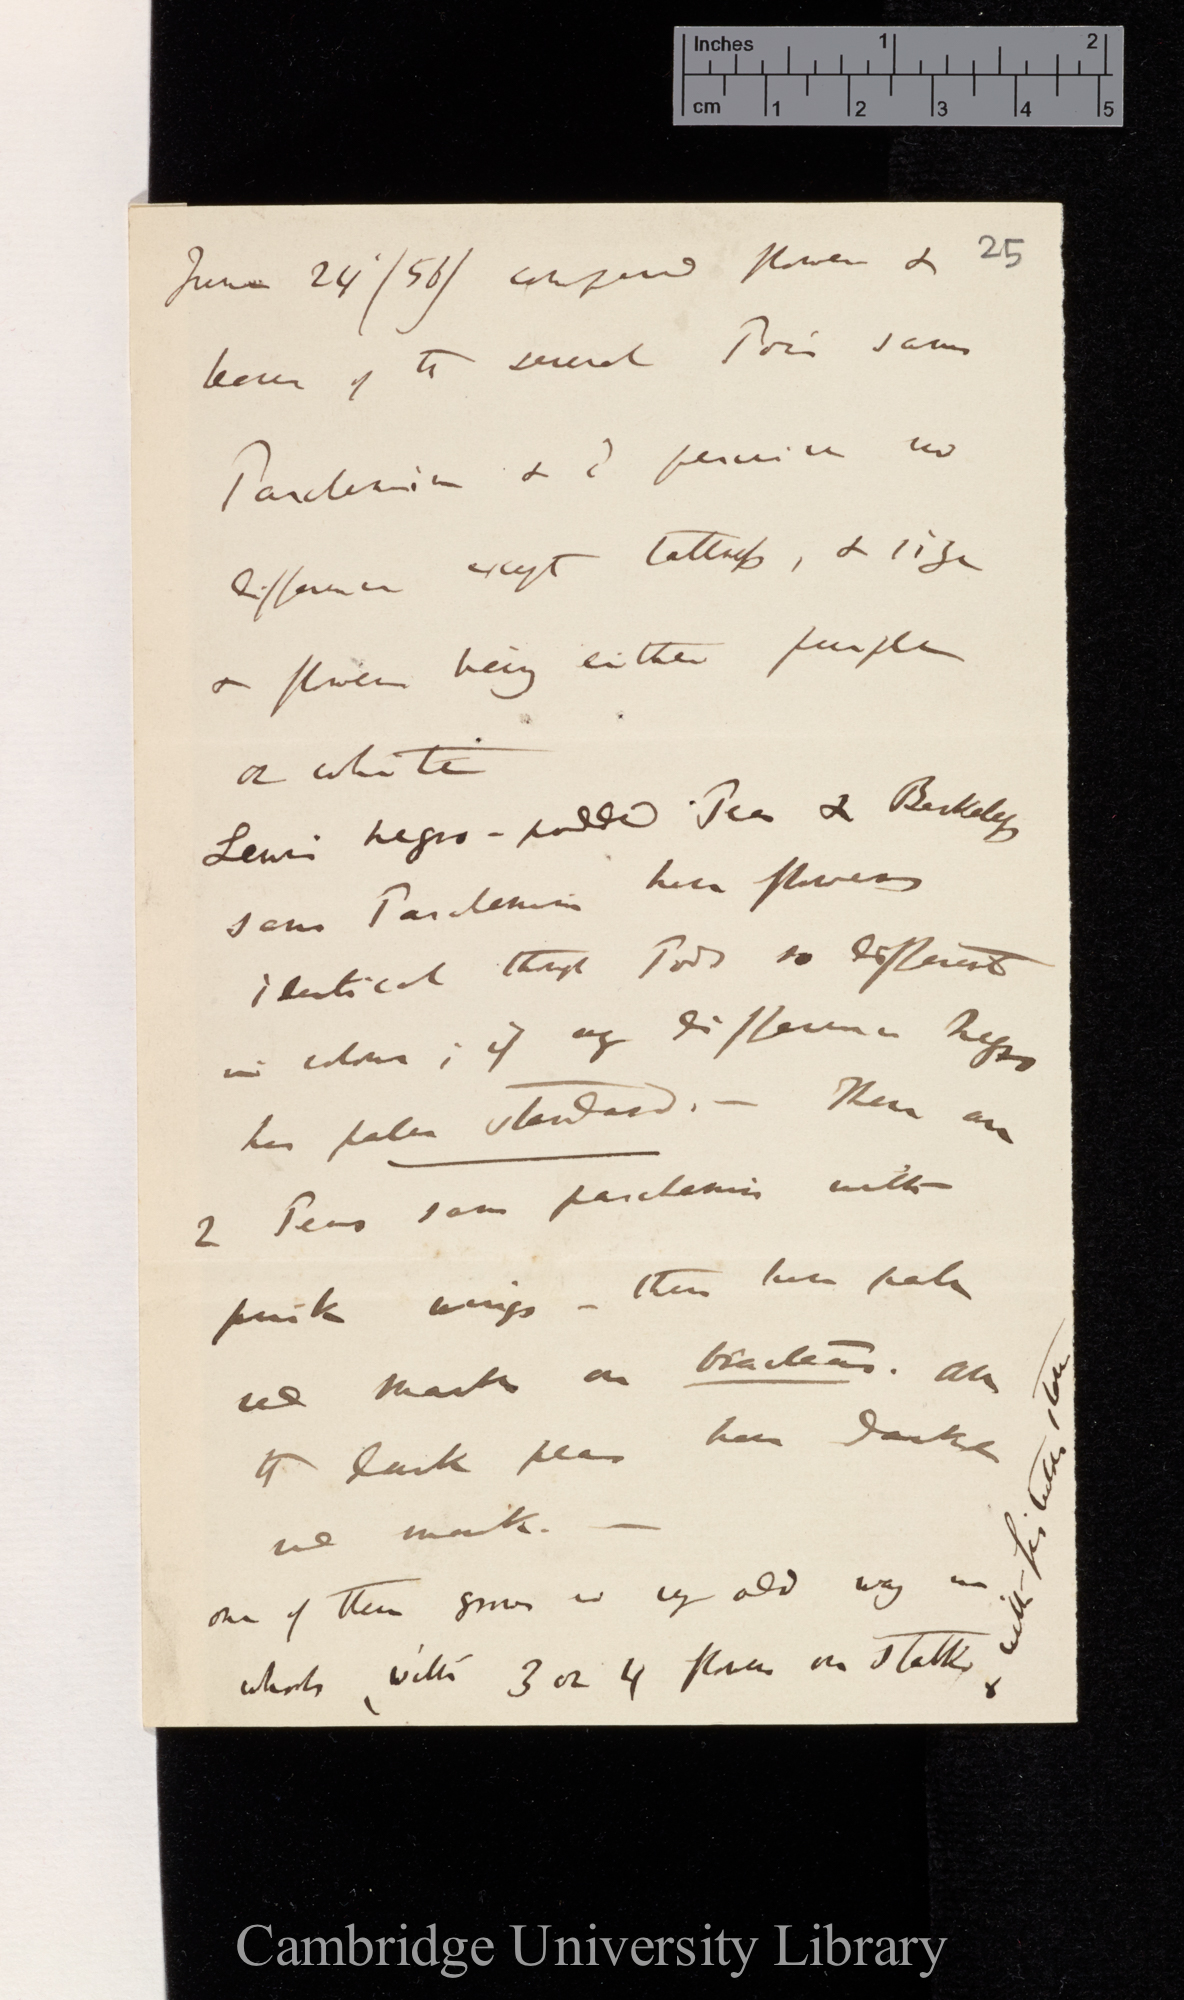 Inches 1 2
cm 1 2 3 4 5
25
June 24' /56/ compared flowers &
leaves of the several Pois sans
Parchemin & I perceive no
difference except tallness, & size
& flowers being either purple
or white
Lewis negro-podded Pea & Berkeleys
sans Parchemin have flowers
identical though Pods so different
in colour; if any difference Negro
has paler standard. — There are
2 Peas sans parchemin with
pink wings – these have pale
red marks on bracteæ. All
the dark peas have darker
red mark. —
one of them grows in very odd way in
whorls with 3 or 4 flowers on stalks
& with
Cambridge University Library